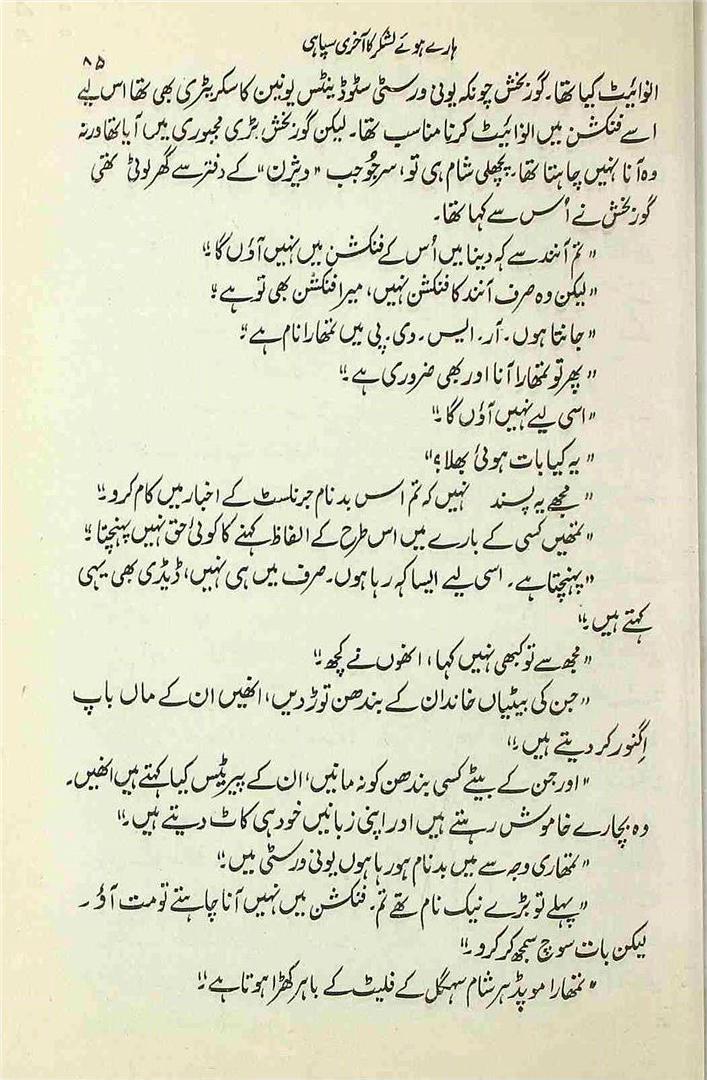 ہارے ہوئے لشکر کا آخری سپاہی
۸۵
انوائیٹ کیا تھا۔ گوربخش چونکہ یونی ورسٹی سٹوڈینٹس یونین کا سکریٹری بھی تھا اس لیے
اسے فنکشن میں انوائیٹ کرنا مناسب تھا۔ لیکن گوربخش بڑی مجبوری میں آیا تھا ورنہ
وہ آنا نہیں چاہتا تھا۔ پچھلی شام ہی تو، سرجُو جب ”ویژن“ کے دفتر سے گھر لوٹی تھی
گوربخش نے اُس سے کہا تھا۔
”تم آنند سے کہ دینا میں اُس کے فنکشن میں نہیں آؤں گا۔“
”لیکن وہ صرف آنند کا فنکشن نہیں، میرا فنکشن بھی تو ہے۔“
”جانتا ہوں۔ آر۔ ایس۔ وی۔ پی میں تمھارا نام ہے۔“
”پھر تو تمھارا آنا اور بھی ضروری ہے۔“
”اسی لیے نہیں آؤں گا۔“
”یہ کیا بات ہوئی بھلا؟“
”مجھے یہ پسند نہیں کہ تم اس بدنام جرنلسٹ کے اخبار میں کام کرو۔“
”تمھیں کسی کے بارے میں اس طرح کے الفاظ کہنے کا کوئی حق نہیں پہنچتا۔“
”پہنچتا ہے۔ اسی لیے ایسا کہ رہا ہوں۔ صرف میں ہی نہیں، ڈیڈی بھی یہی
کہتے ہیں۔“
”مجھ سے تو کبھی نہیں کہا، انھوں نے کچھ۔“
”جن کی بیٹیاں خاندان کے بندھن توڑ دیں، انھیں ان کے ماں باپ
اِگنور کر دیتے ہیں۔“
”اور جن کے بیٹے کسی بندھن کو نہ مانیں، ان کے پیرنٹس کیا کہتے ہیں انھیں۔
وہ بچارے خاموش رہتے ہیں اور اپنی زبانیں خود ہی کاٹ دیتے ہیں۔“
”تمھاری وجہ سے میں بدنام ہو رہا ہوں یونی ورسٹی میں۔“
”پہلے تو بڑے نیک نام تھے تم۔ فنکشن میں نہیں آنا چاہتے تو مت آؤ۔
لیکن بات سوچ سمجھ کر کرو۔“
”تمھارا موپڈ ہر شام سہگل کے فلیٹ کے باہر کھڑا ہوتا ہے۔“